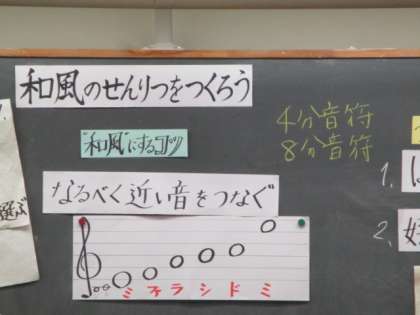 和風のせんりつをつくろう
"和風"にするコツ
なるべく近い音をつなぐ
ミファラシドミ
4分音符
8分音符
選ぶ
1.
2.